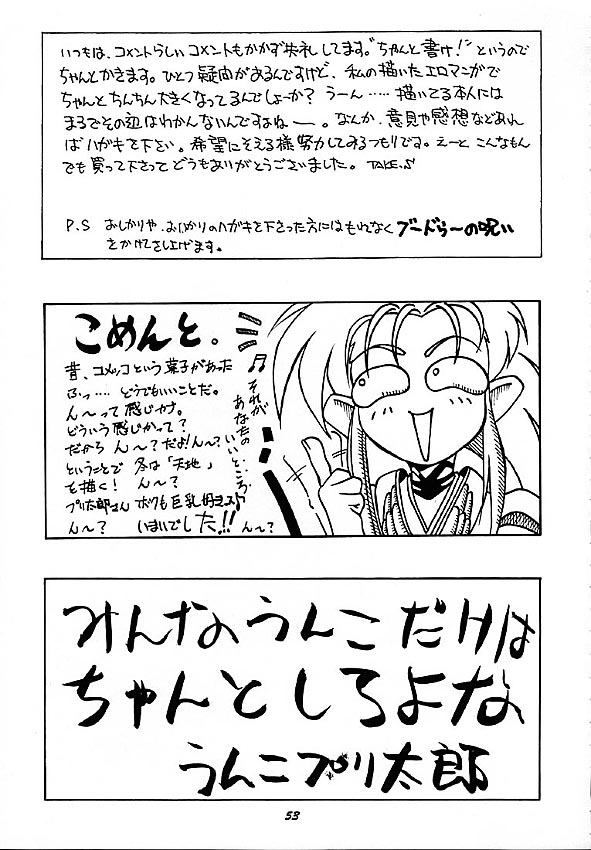 いつもは、コメントらしいコメントもかかず失礼してます。"ちゃんと書け!"というので
ちゃんとかきます。ひとつ疑問があるんですけど、私の描いたエロマンガで
ちゃんとちんちん大きくなってるんでしょーか? うーん……描いてる本人には
まるでその辺はわかんないんですよねー。なんか、意見や感想などあれ
ばハガキを下さい。希望にそえる様努力してみるつもりです。えーと こんなもん
でも買って下さってどうもありがとうございました。 TAKE.S
P.S おしかりや、おいかりのハガキを下さった方にはもれなくブードゥーの呪い
をかけてさし上げます。
こめんと。
昔、コメッコという菓子があった
ふっ……どうでもいいことだ。
ん〜って感じかな。
どういう感じかって?
だから ん〜?だよ!ん〜?
ということで 冬は「天地」
を描く! ん〜?
プリ太郎さん ボクも巨乳好きスよ
ん〜? いまいでした!! ん〜?
♫それが
あなたの
いいところ♪
みんなうんこだけは
ちゃんとしろよな
うんこプリ太郎
53